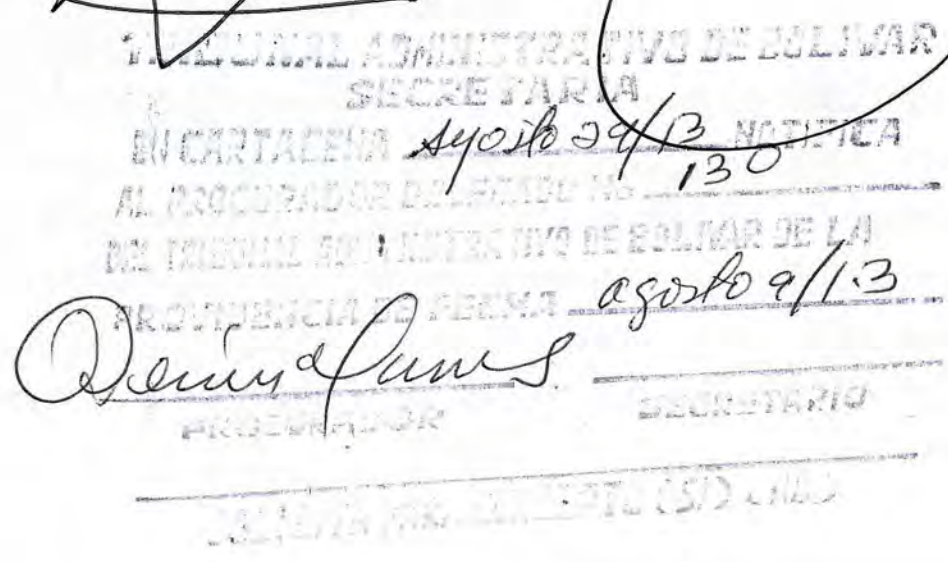 TRIBUNAL ADMINISTRATIVO DE BOLIVAR
SECRETARIA
EN CARTAGENA agosto 29/13 NOTIFICA
AL PROCURADOR DELEGADO No 130
DEL TRIBUNAL ADMINISTRATIVO DE BOLIVAR DE LA
PROVIDENCIA DE FECHA agosto 9/13
PROCURADOR SECRETARIO